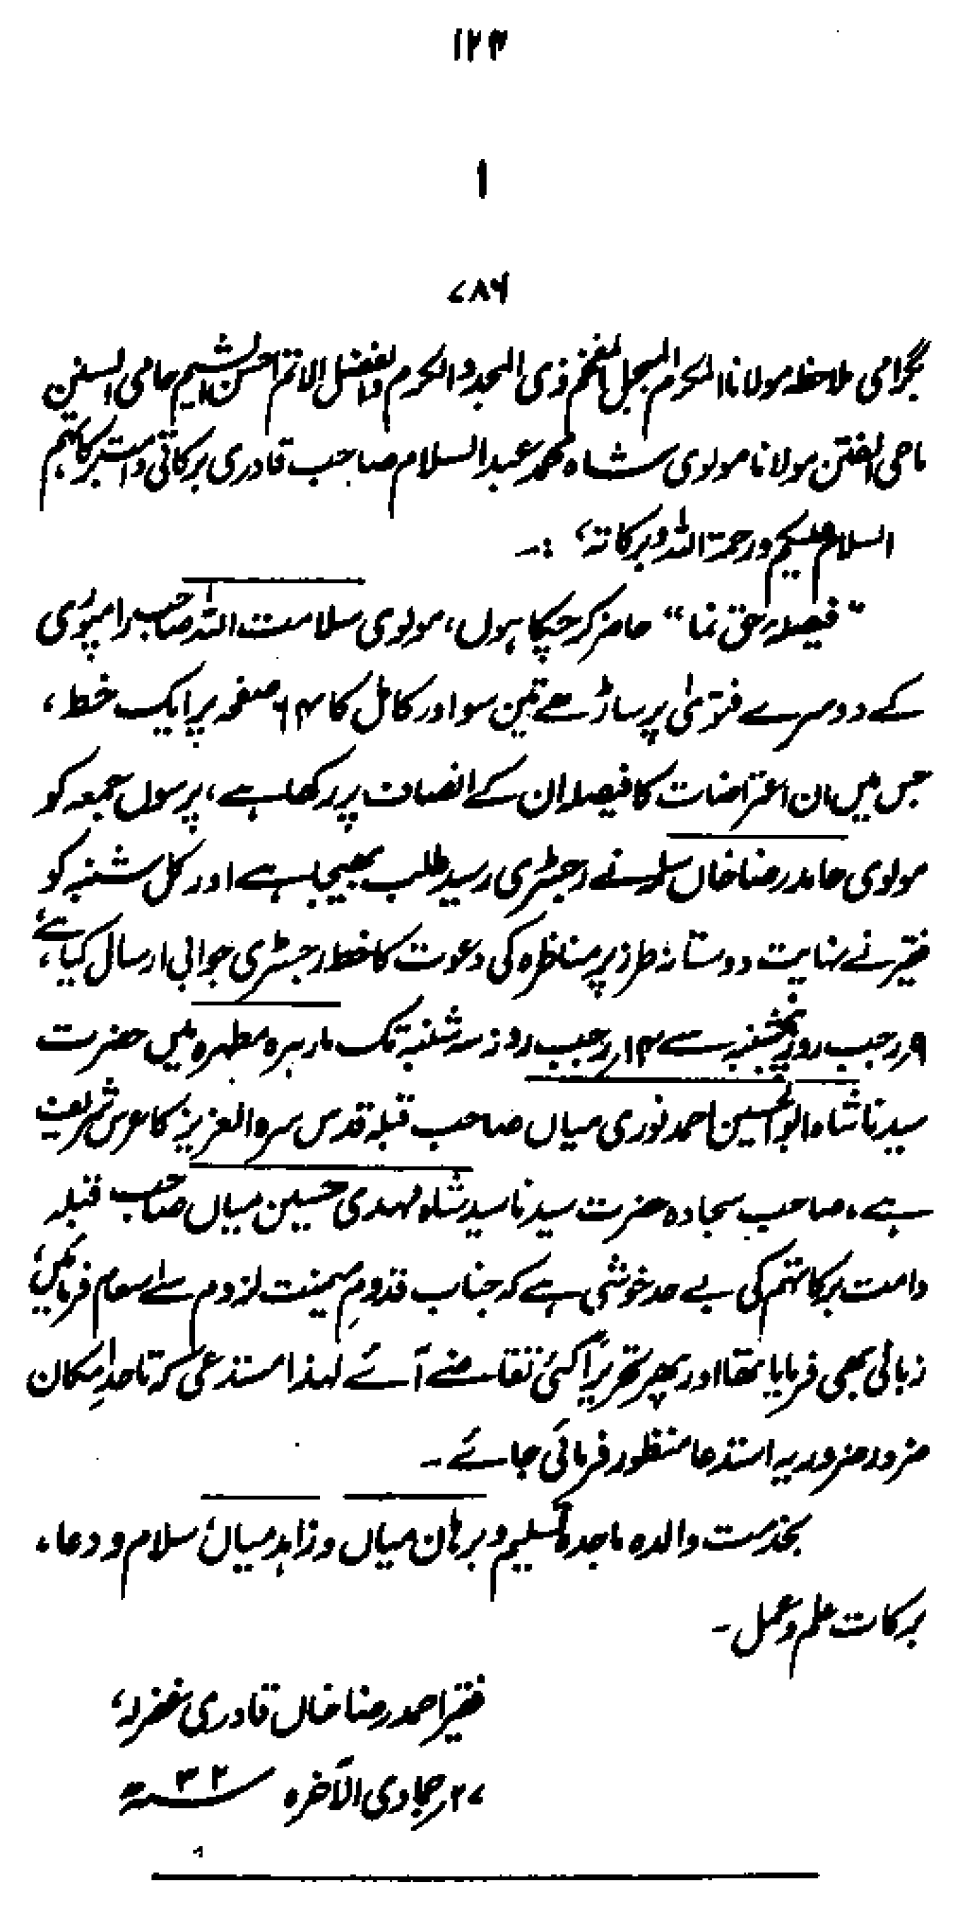 ۱۲۳
۱
۷۸۶
بگرامی ملاحظہ مولانا المکرم المبجل المفخم ذی المجد والکرم والفضل الاتم احسن الشیم حامی السنن
ماحی الفتن مولانا مولوی شاہ محمد عبدالسلام صاحب قادری برکاتی دامت برکاتہم
السلام علیکم ورحمۃ اللہ وبرکاتہ، :۔
"فیصلہ حق نما" حاضر کر چکا ہوں، مولوی سلامت اللہ صاحب رامپوری
کے دوسرے فتویٰ پر ساڑھے تین سو اور کامل کا ۶۴ صفحہ پر ایک خط،
جس میں ان اعتراضات کا فیصلہ ان کے انصاف پر رکھا ہے، پرسوں جمعہ کو
مولوی حامد رضا خاں سلمہ نے رجسٹری رسید طلب بھیجا ہے اور کل شنبہ کو
فقیر نے نہایت دوستانہ طرز پر مناظرہ کی دعوت کا خط رجسٹری جوابی ارسال کیا ہے،
۹ رجب روز پنجشنبہ سے ۱۴ رجب روز سہ شنبہ تک مارہرہ مطہرہ میں حضرت
سیدنا شاہ ابوالحسین احمد نوری میاں صاحب قبلہ قدس سرہ العزیز کا عرس شریف
ہے۔ صاحب سجادہ حضرت سیدنا سید شاہ مہدی حسین میاں صاحب قبلہ
دامت برکاتہم کی بے حد خوشی ہے کہ جناب قدوم میمنت لزوم سے اسعام فرمائیں،
زبانی بھی فرمایا تھا اور پھر تحریراً کئی تقاضے آئے لہذا مستدعی کہ تا حد امکان
ضرور ضرور یہ استدعا منظور فرمائی جائے ۔
بخدمت والدہ ماجدہ تسلیم و برہان میاں و زاہد میاں سلام و دعاء
برکات علم و عمل ۔
فقیر احمد رضا خاں قادری غفرلہ،
۲۷ جمادی الآخرہ ۳۲ ھ